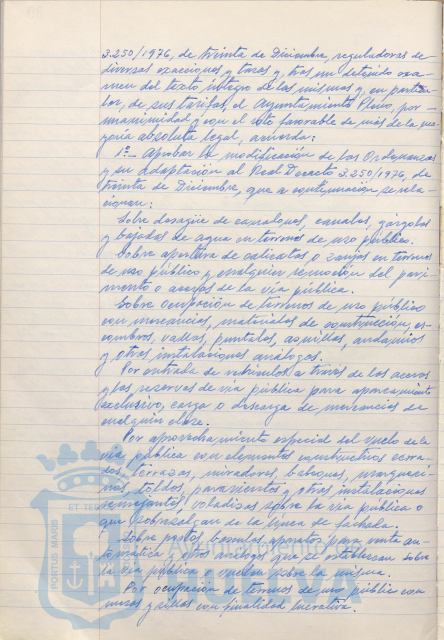 3.250/1976, de treinta de Diciembre, reguladoras de
diversas exacciones y tasas y tras un detenido exa-
men del texto íntegro de las mismas y, en particu-
lar, de sus tarifas, el Ayuntamiento Pleno, por
unanimidad y con el voto favorable de más de la ma-
yoría absoluta legal, acuerda:
1º.- Aprobar la modificación de las Ordenanzas
y su adaptación al Real Decreto 3.250/1976, de
treinta de Diciembre, que a continuación se rela-
cionan:
Sobre desagüe de canalones, canales, gárgolas
y bajadas de agua en terrenos de uso público.
Sobre apertura de calicatas o zanjas en terrenos
de uso público y cualquier remoción del pavi-
mento o aceras de la vía pública.
Sobre ocupación de terrenos de uso público
con mercancías, materiales de construcción, es-
combros, vallas, puntales, asnillas, andamios
y otras instalaciones análogas.
Por entrada de vehículos a través de las aceras
y las reservas de vía pública para aparcamiento
exclusivo, carga o descarga de mercancías de
cualquier clase.
Por aprovechamiento especial del vuelo de la
vía pública con elementos constructivos cerra-
dos, terrazas, miradores, balcones, marquesi-
nas, toldos, paravientos y otras instalaciones
semejantes, voladizas sobre la vía pública o
que sobresalgan de la línea de fachada.
Sobre postes, básculas, aparatos para venta au-
tomática y otros análogos que se establezcan sobre
la vía pública o vuelen sobre la misma.
Por ocupación de terrenos de uso público con
mesas y sillas con finalidad lucrativa.
PORTUS MARIS
ET TER